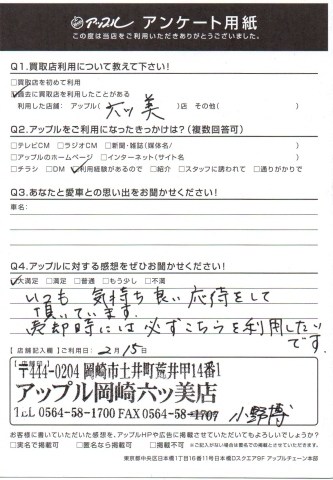 アップル アンケート用紙
この度は当店をご利用いただきありがとうございました。
Q1.買取店利用について教えて下さい!
□買取店を初めて利用
☑過去に買取店を利用したことがある
利用した店舗: アップル( 六ッ美 )店 その他( )
Q2.アップルをご利用になったきっかけは?(複数回答可)
□テレビCM □ラジオCM □新聞・雑誌(媒体名/ )
□アップルのホームページ □インターネット(サイト名 )
□チラシ □DM ☑利用経験があるので □紹介 □スタッフに誘われて □通りがかりで
Q3.あなたと愛車との思い出をお聞かせください!
車名:
Q4.アップルに対する感想をぜひお聞かせください!
☑大満足 □満足 □普通 □もう少し □不満
いつも 気持ち良い 応待をして
頂いています.
売却時には必ずこちらを利用したい
です.
【店舗記入欄】【ご利用日: 2月15日
〒444-0204 岡崎市土井町荒井甲14番1
アップル岡崎六ッ美店
TEL 0564-58-1700 FAX 0564-58-1707 小野博
お客様に書いていただいた感想を、アップルHPや広告に掲載させていただいてもよろしいでしょうか?
□実名で掲載可 □匿名なら掲載可 □掲載不可 ※ご記入がない場合は匿名での掲載とさせていただきます。
東京都中央区日本橋1丁目16番11号日本橋Dスクエア9F アップルチェーン本部